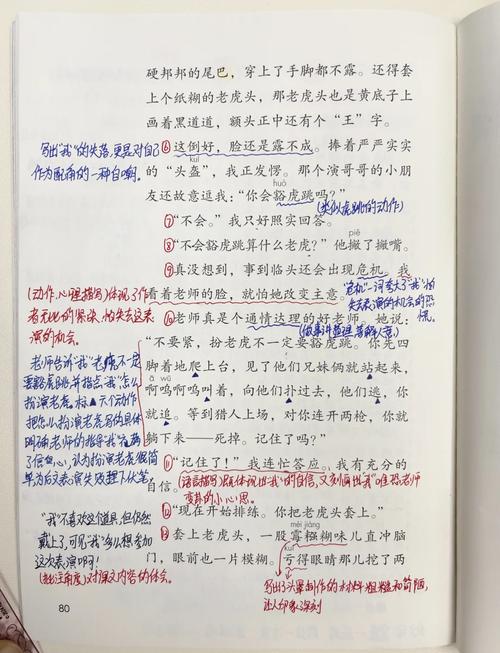 硬邦邦的尾巴，穿上了手脚都不露。还得套
上个纸糊的老虎头，那老虎头也是黄底子上
画着黑道道，额头正中还有个“王”字。
⑥这倒好，脸还是露不成。捧着严严实实
kuī
的“头盔”，我正发愣。那个演哥哥的小朋
huō
友还故意逗我：“你会豁虎跳吗？”
(类似虎跳的动作)
写出“我”的失落,更是对自己
作为配角的一种自嘲。
⑦“不会。”我只好照实回答。
piē
⑧“不会豁虎跳算什么老虎？”他撇了撇嘴。
⑨真没想到，事到临头还会出现危机，我
看着老师的脸，就怕她改变主意。
“危机”一词夸大了“我”怕
失去表演的机会的恐
慌。
(动作、心理描写)体现了作
者无比的紧张,怕失去表
演的机会。
⑩老师真是个通情达理的好老师。她说：
(做事讲道理,善解人意)
“不要紧，扮老虎不一定要豁虎跳。你先四
脚着地爬上台，见了他们兄妹俩就站起来，
ā wū
啊呜啊呜叫着，向他们扑过去，他们逃，你
就追。等到猎人上场，对你连开两枪，你就
躺下来——死掉。记住了吗？”
老师告诉“我”老虎不一定
要豁虎跳并指点“我”怎么
扮演老虎,六个动作
把怎么扮演老虎写的具体
明确,老师的指导我充满
了信心,认为扮演老虎很简
单,为后文表演失败埋下伏笔
⑪“记住了！”我连忙答应。我有充分的
自信。
(语言描写)既体现出“我”的自信,又刻画出“我”唯恐老师
变卦的小心思。
⑫“现在开始排练。你把老虎头套上。”
méi jiàng
⑬套上老虎头，一股霉糨糊味儿直冲脑
kuī
门，眼前也一片模糊。亏得眼睛那儿挖了两
“我”不喜欢这道具,但仍然
戴上了,可见“我”多么想参加
这次表演啊!
(批注角度)对课文内容的体会。
写出了头罩制作的材料粗糙和简陋,
让人印象深刻
80